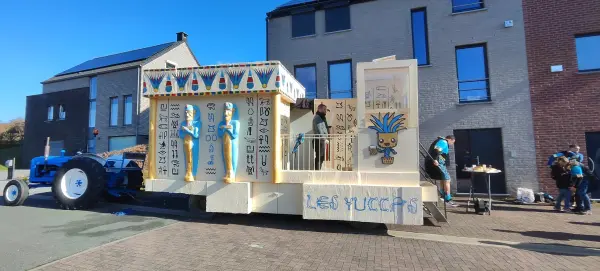 LES YUCCA'S